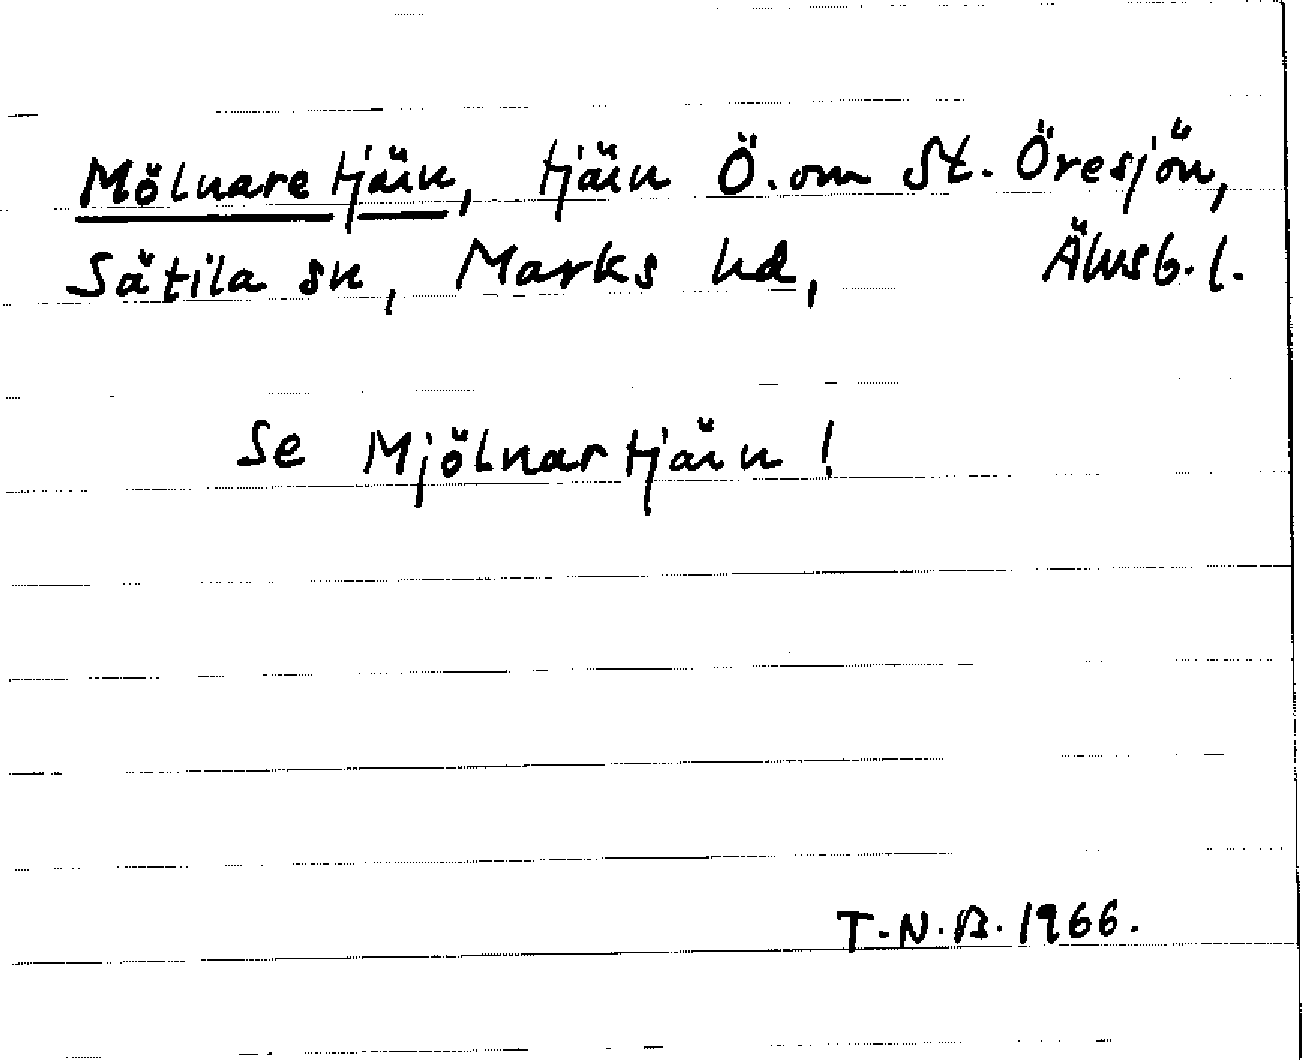 Mölnaretjärn, tjärn Ö. om St. Öresjön,
Sätila sn, Marks hd, Älvsb. l.
Se Mjölnartjärn!
T.N.B. 1966.